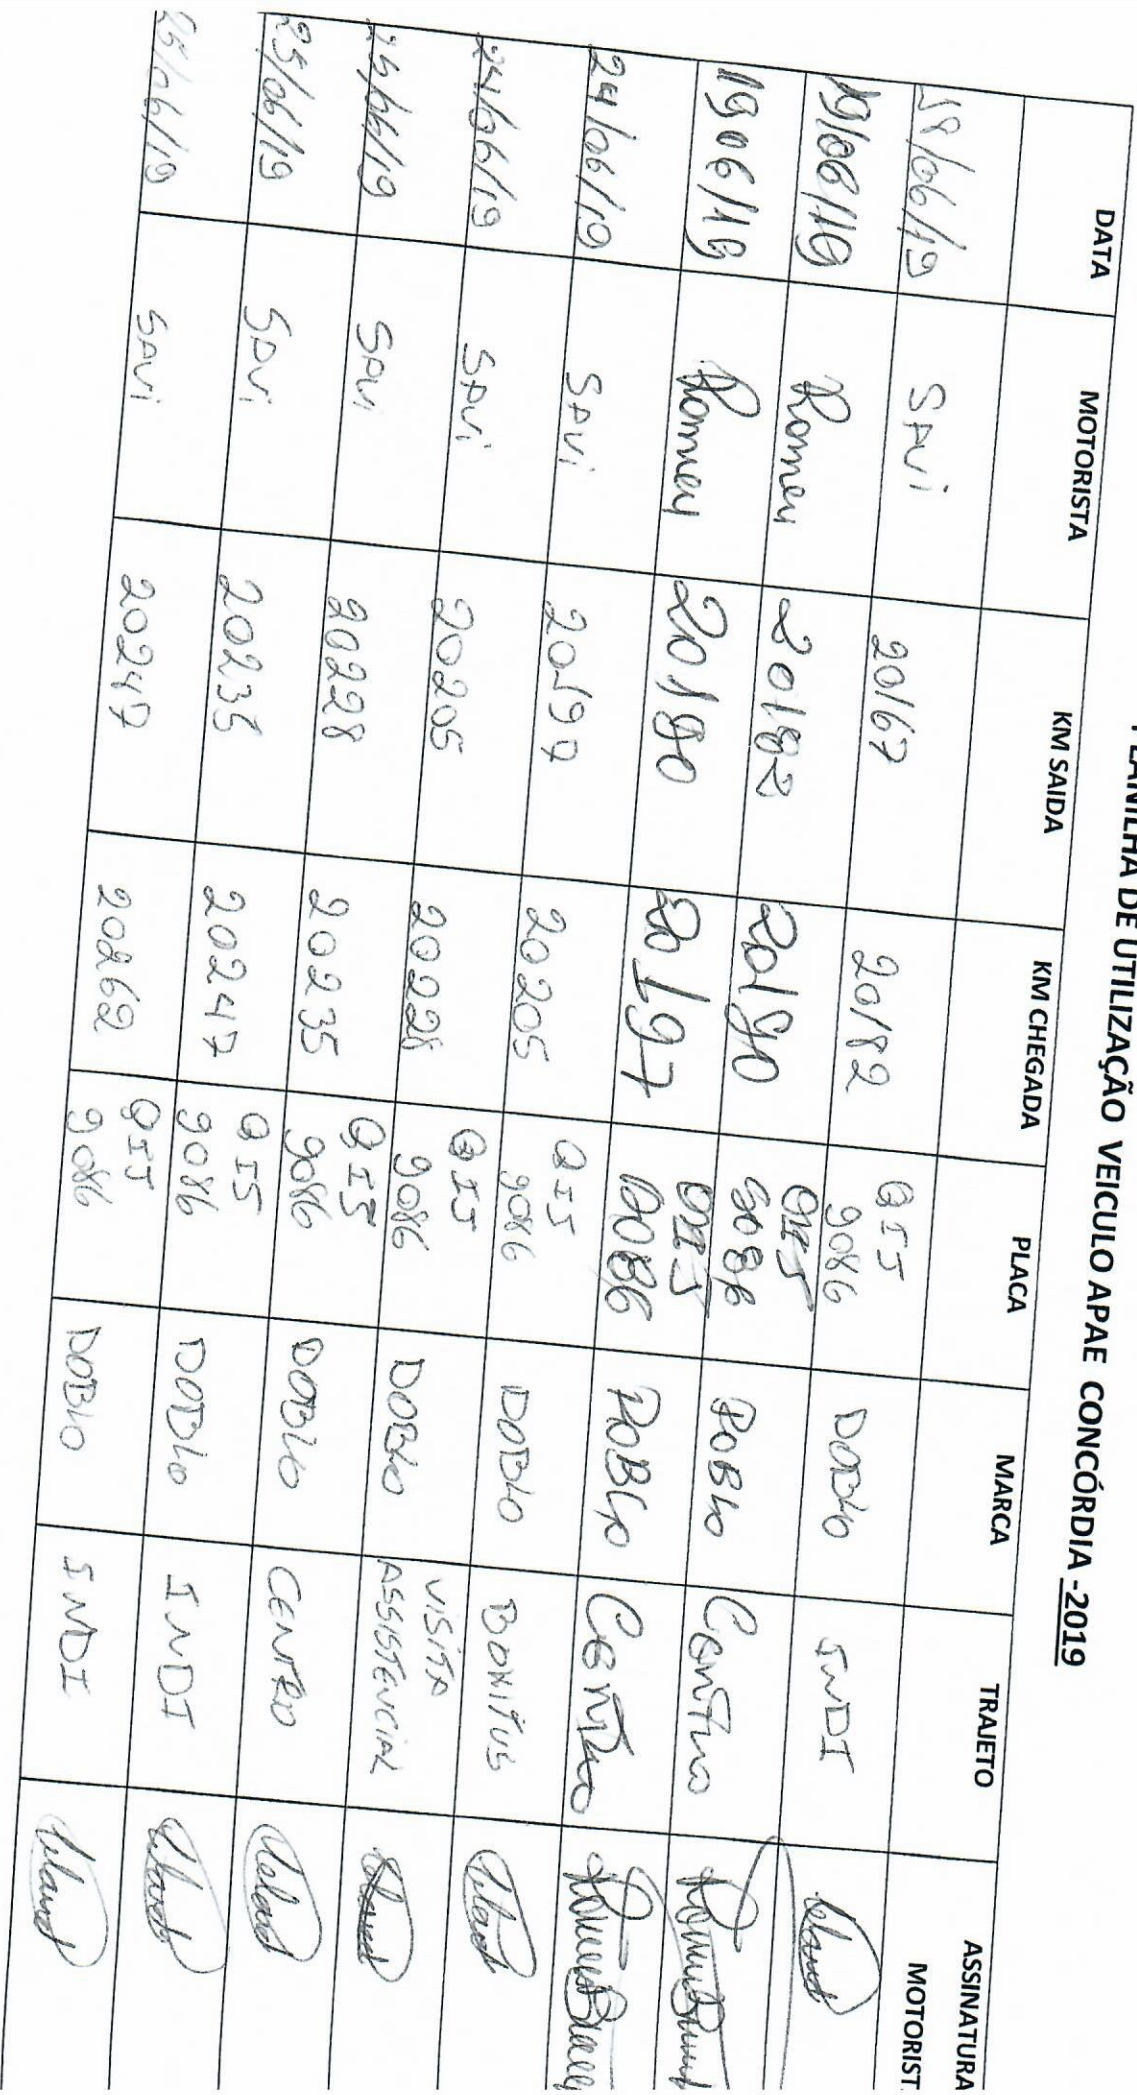 PLANILHA DE UTILIZAÇÃO VEICULO APAE CONCÓRDIA -2019
DATA MOTORISTA KM SAIDA KM CHEGADA PLACA MARCA TRAJETO ASSINATURA MOTORIST.
18/06/19 SAVI 20167 20182 QIJ 9086 DOBLO INDI
19/06/19 Romeu 20182 20190 QIJ 9086 DOBLO Centro
19/06/19 Romeu 20190 20197 QIJ 9086 DOBLO Centro
24/06/19 SAVI 20197 20205 QIJ 9086 DOBLO BONITUS
24/06/19 SAVI 20205 20228 QIJ 9086 DOBLO VISITA ASSISTENCIAL
25/06/19 SAVI 20228 20235 QIJ 9086 DOBLO CENTRO
25/06/19 SAVI 20235 20247 QIJ 9086 DOBLO INDI
25/06/19 SAVI 20247 20262 QIJ 9086 DOBLO INDI